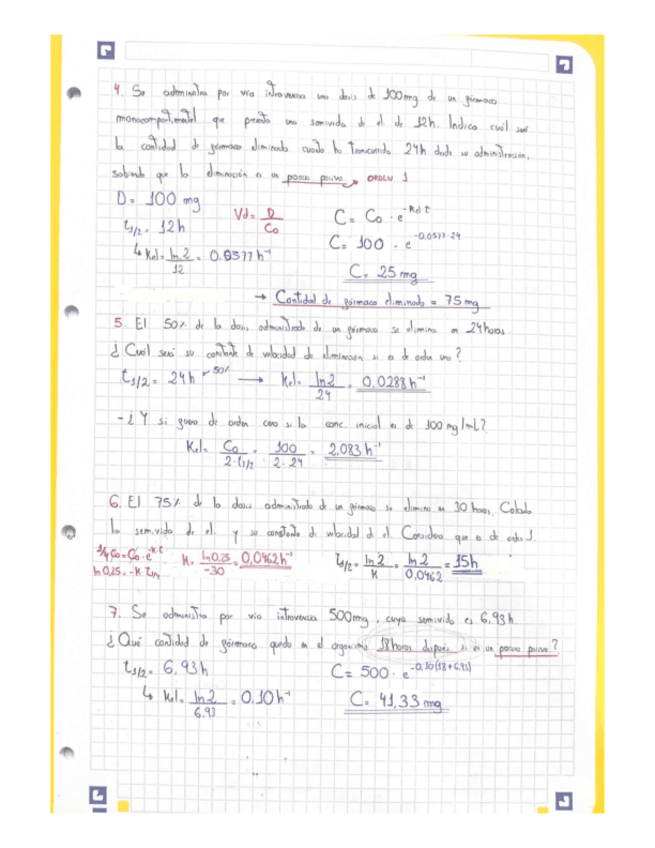 4. Se administra por vía intravenosa una dosis de 100mg de un fármaco
monocompartimental que presenta una semivida de el. de 12h. Indica cuál será
la cantidad de fármaco eliminada cuando ha transcurrido 24h desde su administración,
sabiendo que la eliminación es un proceso pasivo. → ORDEN 1
D = 100 mg
t1/2 = 12h
Vd = D / C₀
C = C₀ · e^-Kel·t
↳ Kel = ln 2 / 12 = 0.0577 h⁻¹
C = 100 · e^-0,0577·24
C = 25 mg
→ Cantidad de fármaco eliminado = 75 mg
5. El 50% de la dosis administrada de un fármaco se elimina en 24 horas
¿Cuál será su constante de velocidad de eliminación si es de orden uno?
t1/2 = 24h ← 50% → Kel = ln 2 / 24 = 0,0288 h⁻¹
- ¿Y si fuera de orden cero si la conc. inicial es de 100 mg/mL?
Kel = C₀ / 2·t1/2 = 100 / 2·24 = 2,083 h⁻¹
6. El 75% de la dosis administrada de un fármaco se elimina en 30 horas. Calcula
la semivida de el. y su constante de velocidad de el. Considera que es de orden 1.
1/4 C₀ = C₀ · e^-k·t
ln 0,25 = -K t1/4
K = ln 0,25 / -30 = 0,0462 h⁻¹
t1/2 = ln 2 / K = ln 2 / 0,0462 = 15h
7. Se administra por vía intravenosa 500mg, cuya semivida es 6,93h.
¿Qué cantidad de fármaco queda en el organismo 18 horas después si es un proceso pasivo?
t1/2 = 6,93h
C = 500 · e^-0,10(18+6.93)
↳ Kel = ln 2 / 6.93 = 0.10 h⁻¹
C = 41,33 mg